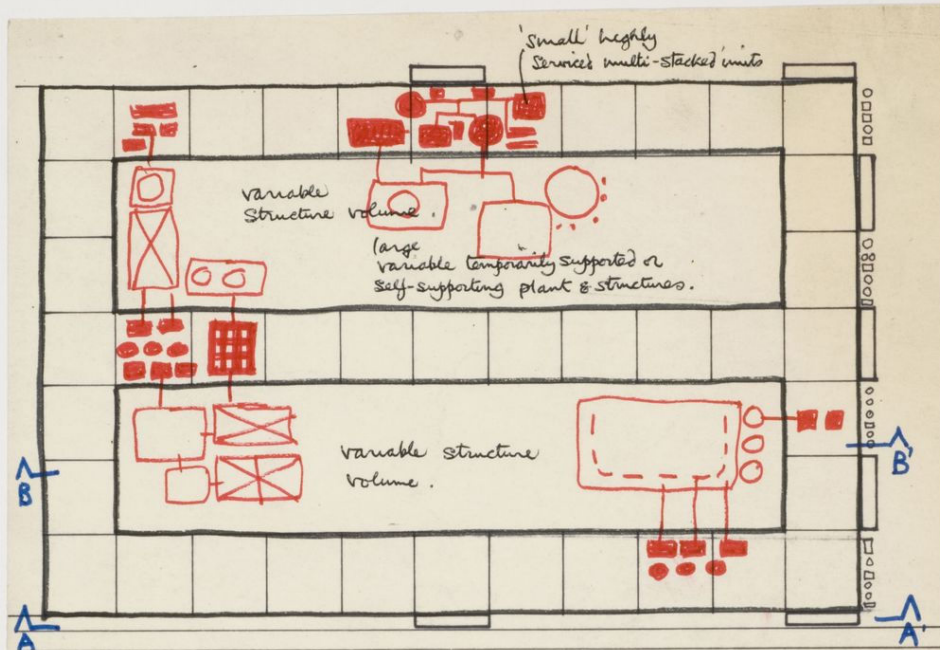 'small' highly
serviced multi-stacked units
variable
structure volume.
large
variable temporarily supported or
self-supporting plant & structures.
variable structure
volume.
B
B'
A
A'